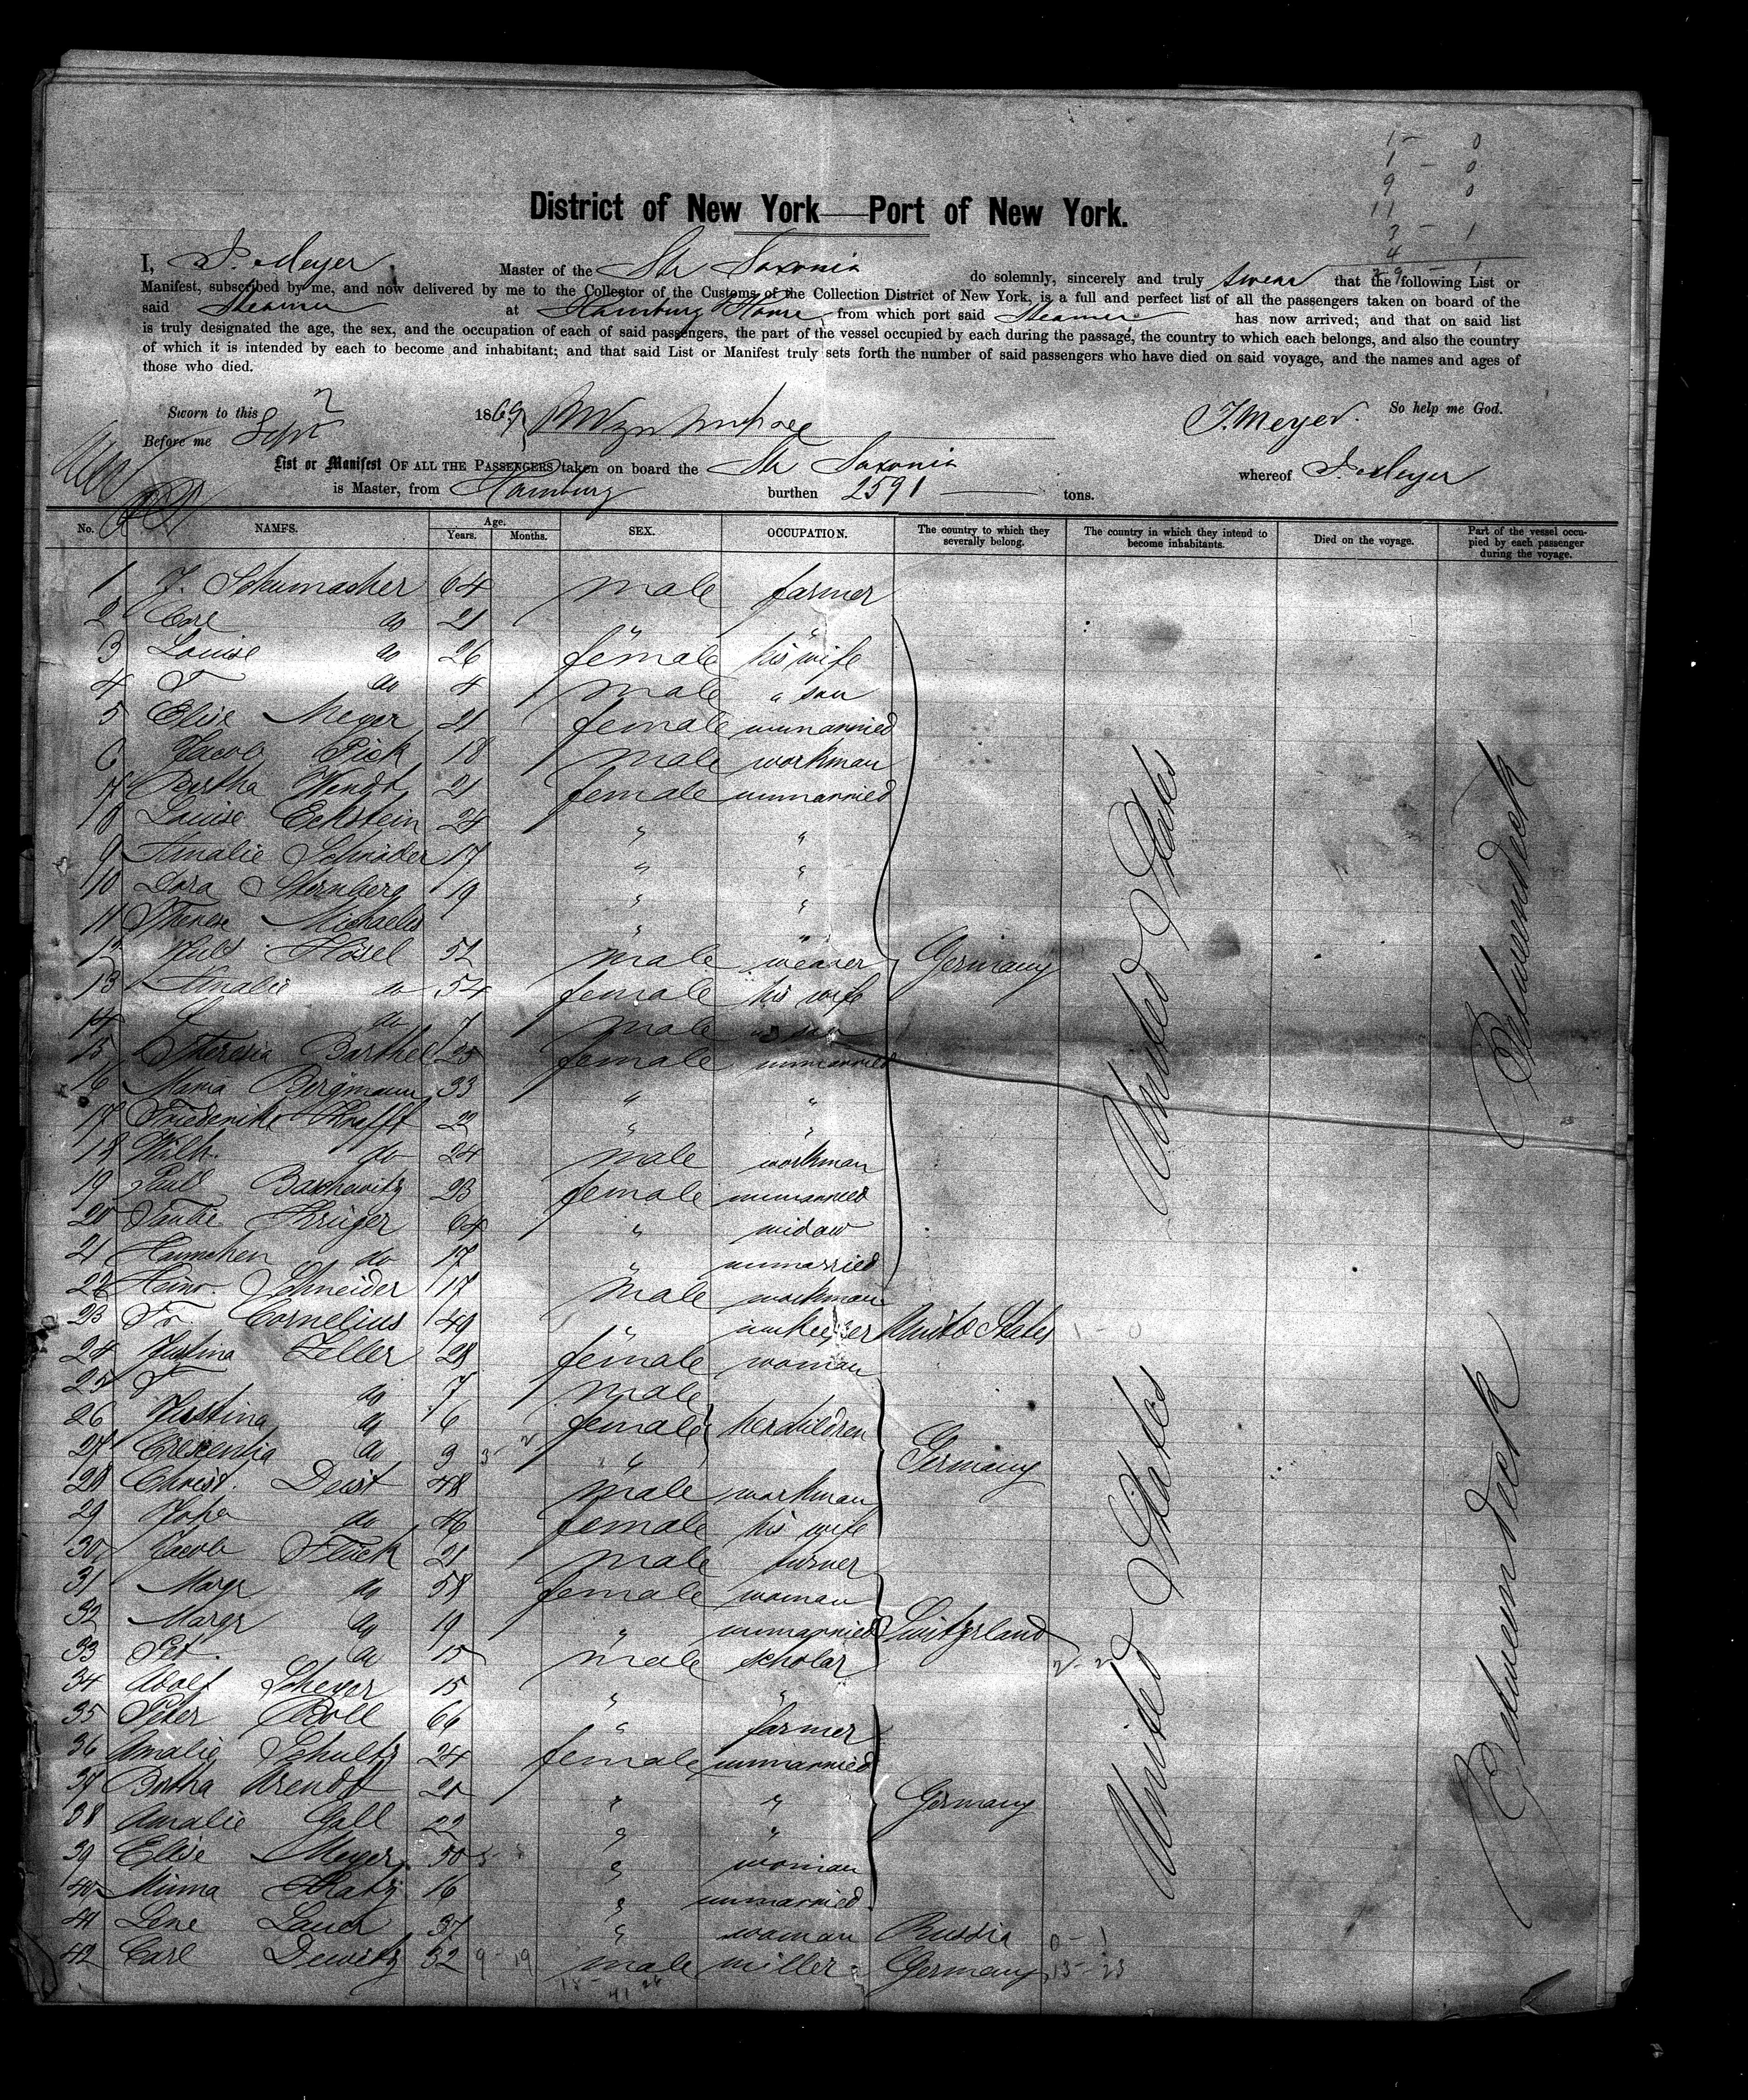 District of New York — Port of New York.
I, J. Meyer Master of the Str Saxonia do solemnly, sincerely and truly swear that the following List or
Manifest, subscribed by me, and now delivered by me to the Collector of the Customs of the Collection District of New York, is a full and perfect list of all the passengers taken on board of the
said Steamer at Hamburg from which port said Steamer has now arrived; and that on said list
is truly designated the age, the sex, and the occupation of each of said passengers, the part of the vessel occupied by each during the passage, the country to which each belongs, and also the country
of which it is intended by each to become and inhabitant; and that said List or Manifest truly sets forth the number of said passengers who have died on said voyage, and the names and ages of
those who died.
Sworn to this 2 1869 So help me God.
Before me Sept J. Meyer.
List or Manifest OF ALL THE PASSENGERS taken on board the Str Saxonia whereof J. Meyer
is Master, from Hamburg burthen 2591 tons.
No. NAMES. Age. Years. Months. SEX. OCCUPATION. The country to which they severally belong. The country in which they intend to become inhabitants. Died on the voyage. Part of the vessel occupied by each passenger during the voyage.
1 J. Schumacher 64 male farmer
2 Carl do 21 " "
3 Louise do 26 female his wife
4 F do 4 male " son
5 Elise Meyer 21 female unmarried
6 Jacob Pick 18 male workman
7 Bertha Wendt 21 female unmarried
8 Louise Eckstein 24 " "
9 Amalie Schröder 17 " "
10 Dora Sternberg 19 " "
11 Therese Michaelis " "
12 Hösel 52 male weaver Germany
13 Amalie do 54 female his wife
14 do 7 male son
15 Theresia Barthel 25 female unmarried
16 Maria Bergmann 33 " "
17 Friederike Krafft 22 " "
18 Wilh. do 24 male workman
19 23 female unmarried
20 Krüger 64 " widow
21 Hannchen do 17 " unmarried
22 Heinr. Schneider 17 male workman
23 Fr. Cornelius 49 " United States
24 Justina Zeller 28 female woman
25 F do 7 male
26 Justina do 6 female her children
27 Crescentia do 3 " Germany
28 Christ. Deist 48 male workman
29 do 46 female his wife
30 Jacob Fluck 21 male turner
31 Margr do 58 female woman
32 Margr do 19 " unmarried Switzerland
33 Pet. do 15 male scholar
34 Adolf 15 " "
35 Peter Boll 66 " farmer
36 Amalie Schultz 24 female unmarried
37 Bertha Arendt 21 " "
38 Amalie Gall 22 " " Germany
39 Elise Meyer 50 " woman
40 Minna 16 " unmarried
41 Lene 37 " woman Russia
42 Carl Dewitz 32 male miller Germany
United States
United States
Betweendeck
Betweendeck